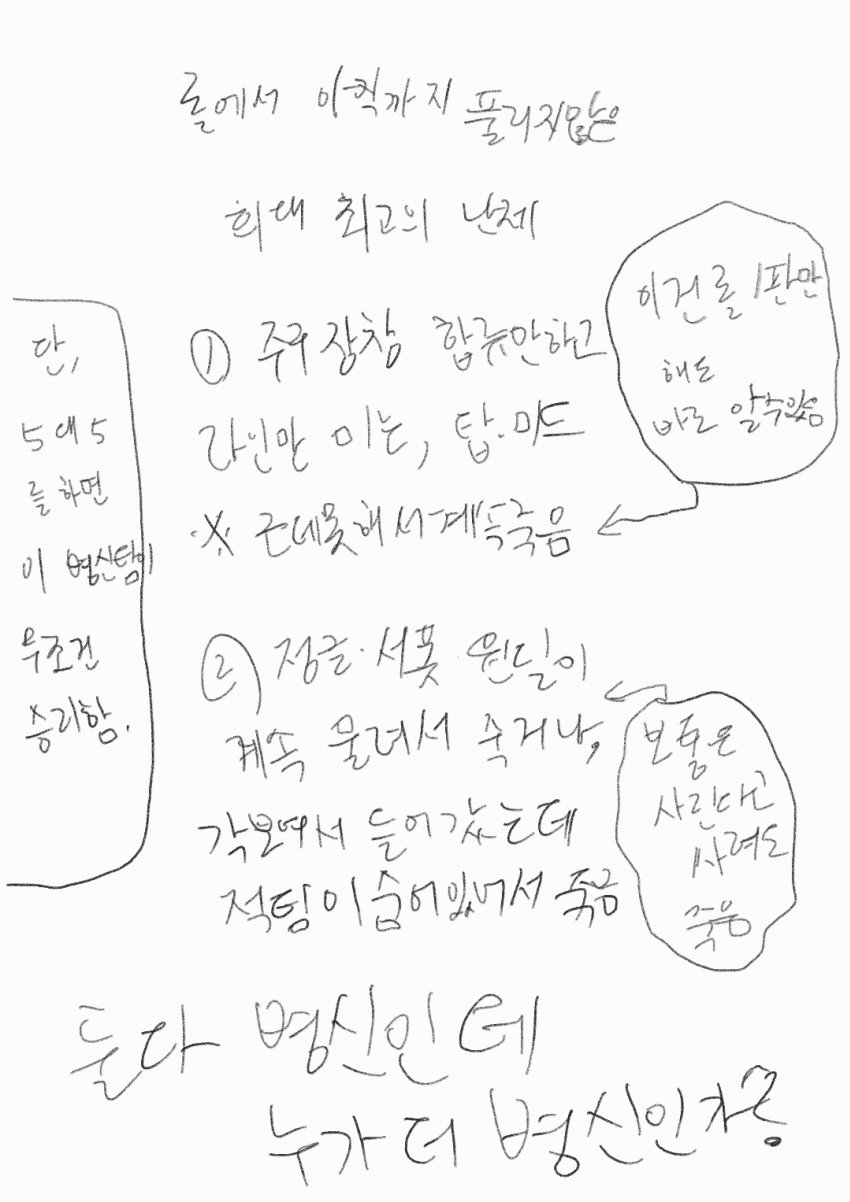 롤에서 아직까지 풀리지않은
희대 최고의 난제
① 주구장창 합류안하고
라인만 미는, 탑·미드
※ 근데못해서계속죽음
이건 롤 1판만
해도
바로 알수있음
단,
5대5
를 하면
이 병신팀이
무조건
승리함.
② 정글·서폿·원딜이
계속 물려서 죽거나,
각보여서 들어갔는데
적팀이 숨어있어서 죽음
보통은
사린다고
사려도
죽음
둘다 병신인데
누가 더 병신인가?